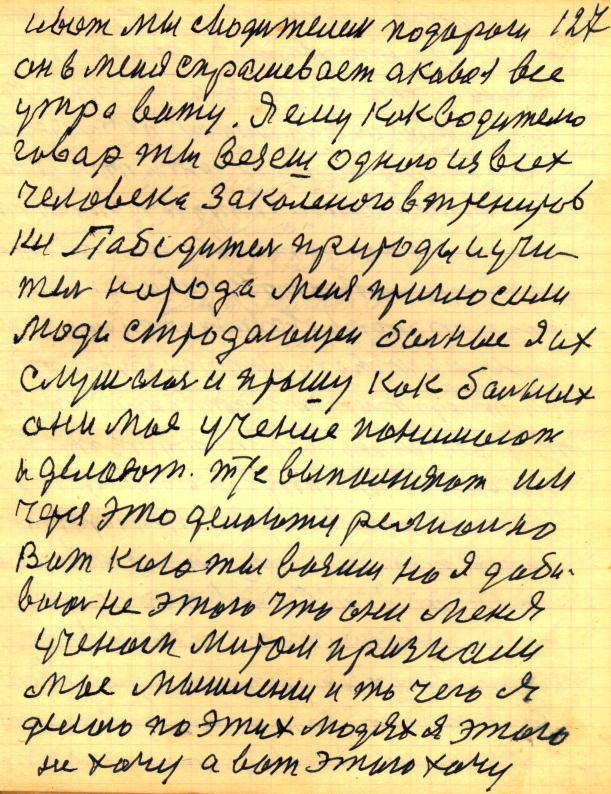 и вот мы с водителем подороги 127
он в меня спрашевает а кавоя все
утра вожу. Я ему как водителю
говар ты везеш одного из всех
человека закаленого в трениров
ки Пабедител природы и учи-
тел народа меня пригласили
люди стродающеи болные я их
слушаюя и прошу как больных
они мае учение понимаюж
и делоют. те выполняют им
через это делоют
Вот кого ты возиш но я доби-
ваюя не этого что они меня
ученоги признали
мае мышлении и то чего я
делаю по этих людях я этого
не хочу а вот этого хочу